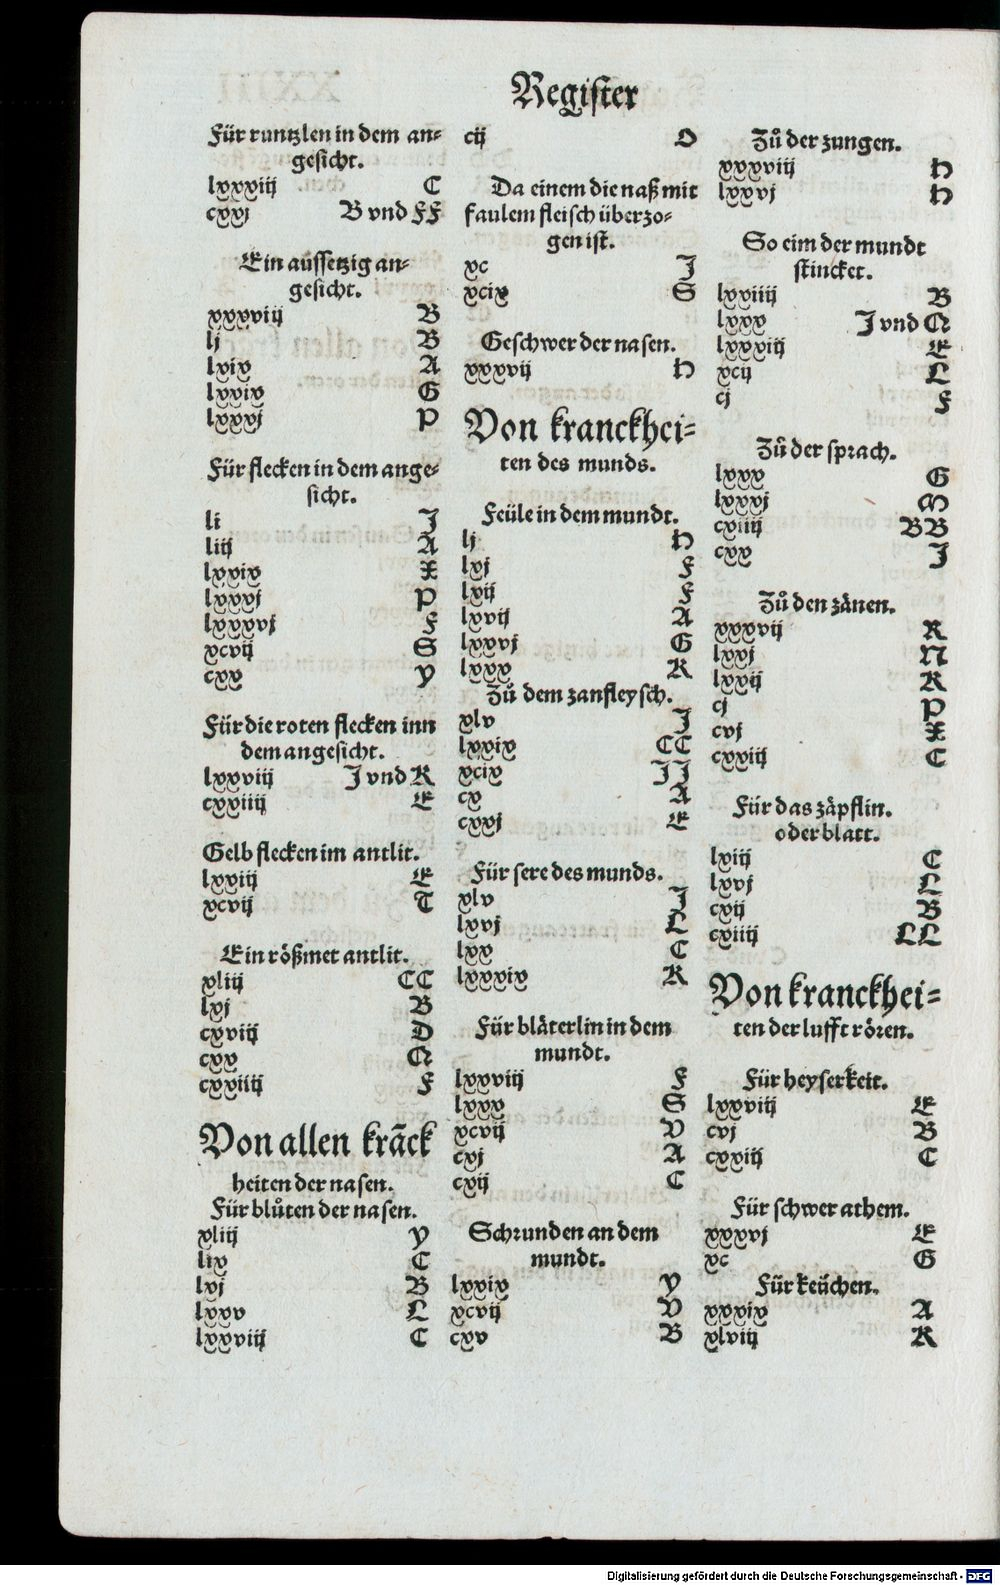 Register
Für runtzlen in dem an=
gesicht.
lxxxiij C
cxxj B vnd FF
Ein aussetzig an=
gesicht.
xxxviij B
lj B
lxix A
lxxix G
lxxxj P
Für flecken in dem ange=
sicht.
lj J
liij A
lxxix X
lxxxj P
lxxxvj F
xcvij S
cxx Y
Für die roten flecken inn
dem angesicht.
lxxviij J vnd K
cxxiiij E
Gelb flecken im antlit.
lxxiij E
xcvij T
Ein rößmet antlit.
xliij CC
lxj B
cxviij D
cxx Q
cxxiiij F
Von allen krãck
heiten der nasen.
Für blůten der nasen.
xliij Y
lix C
lxj B
lxxv L
lxxviij C
cij O
Da einem die naß mit
faulem fleisch überzo=
gen ist.
xc J
xcix S
Geschwer der nasen.
xxxvij H
Von kranckhei=
ten des munds.
Feüle in dem mundt.
lj H
lxj F
lxij F
lxvij A
lxxvj G
lxxx K
Zů dem zanfleysch.
xlv J
lxxix CC
xcix JJ
cx A
cxxj E
Für sere des munds.
xlv J
lxvj H
lxx C
lxxxix K
Für bläterlin in dem
mundt.
lxxviij F
lxxx S
xcvij V
cxj A
cxij C
Schrunden an dem
mundt.
lxxix Y
xcvij V
cxv B
Zů der zungen.
xxxviij H
lxxvj H
So eim der mundt
stincket.
lxviiij B
lxxx J vnd Q
lxxxiij E
xcij L
cj F
Zů der sprach.
lxxx G
lxxxj M
cxiiij BB
cxx J
Zů den zänen.
xxxvij R
lxxj N
lxxij K
cj P
cvj X
cxviij C
Für das zäpflin.
oder blatt.
lxiij C
lxvj H
cxij B
cxiiij LL
Von kranckhei=
ten der lufft rören.
Für heyserkeit.
lxxviij E
cvj B
cxxiij C
Für schwer athem.
xxxvj E
xc G
Für keüchen.
xxxix A
xlviij K
Digitalisierung gefördert durch die Deutsche Forschungsgemeinschaft - DFG